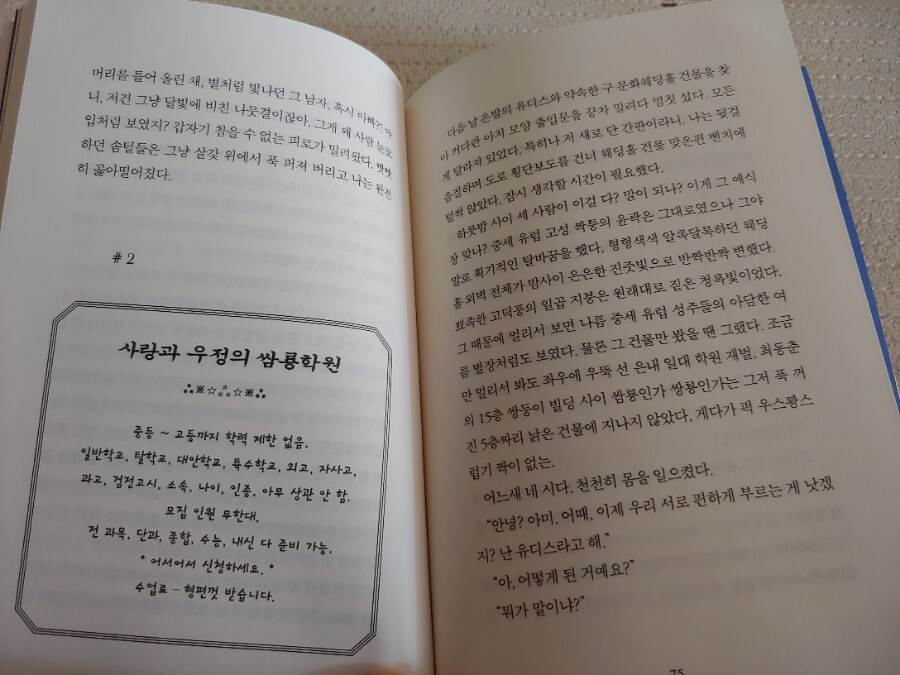 머리를 들어 올린 채, 별처럼 빛나던 그 남자. 혹시 아빠?! 아
니, 저건 그냥 달빛에 비친 나뭇결이잖아. 그게 왜 사람 눈코
입처럼 보였지? 갑자기 참을 수 없는 피로가 밀려왔다. 뺏뺏
하던 솜털들은 그냥 살갗 위에서 푹 퍼져 버리고 나는 완전
히 곯아떨어졌다.
#2
사랑과 우정의 쌈룡학원
중등 ~ 고등까지 학력 제한 없음.
일반학교, 탈학교, 대안학교, 특수학교, 외고, 자사고,
과고, 검정고시, 소속, 나이, 인종, 아무 상관 안 함.
모집 인원 무한대.
전 과목, 단과, 종합, 수능, 내신 다 준비 가능.
* 어서어서 신청하세요. *
수업료 – 형편껏 받습니다.
다음 날 은발의 유디스와 약속한 구 문화웨딩홀 건물을 찾
아 커다란 아치 모양 출입문을 끙차 밀려다 멈칫 섰다. 모든
게 달라져 있었다. 특히나 저 새로 단 간판이라니. 나는 뒷걸
음질하며 도로 횡단보도를 건너 웨딩홀 건물 맞은편 벤치에
털썩 앉았다. 잠시 생각할 시간이 필요했다.
하룻밤 사이 세 사람이 이걸 다? 말이 되나? 이게 그 예식
장 맞나? 중세 유럽 고성 짝퉁의 윤곽은 그대로였으나 그야
말로 획기적인 탈바꿈을 했다. 형형색색 알록달록하던 웨딩
홀 외벽 전체가 밤사이 은은한 진줏빛으로 반짝반짝 변했다.
뾰족한 고딕풍의 일곱 지붕은 원래대로 짙은 청록빛이었다.
그 때문에 멀리서 보면 나름 중세 유럽 성주들의 아담한 여
름 별장처럼도 보였다. 물론 그 건물만 봤을 땐 그랬다. 조금
만 멀리서 봐도 좌우에 우뚝 선 은내 일대 학원 재벌, 최동춘
의 15층 쌍둥이 빌딩 사이 쌈룡인가 쌍룡인가는 그저 푹 꺼
진 5층짜리 낡은 건물에 지나지 않았다, 게다가 퍽 우스꽝스
럽기 짝이 없는.
어느새 네 시다. 천천히 몸을 일으켰다.
“안녕? 아미. 어때, 이제 우리 서로 편하게 부르는 게 낫겠
지? 난 유디스라고 해.”
“아, 어떻게 된 거예요?”
“뭐가 말이냐?”
75